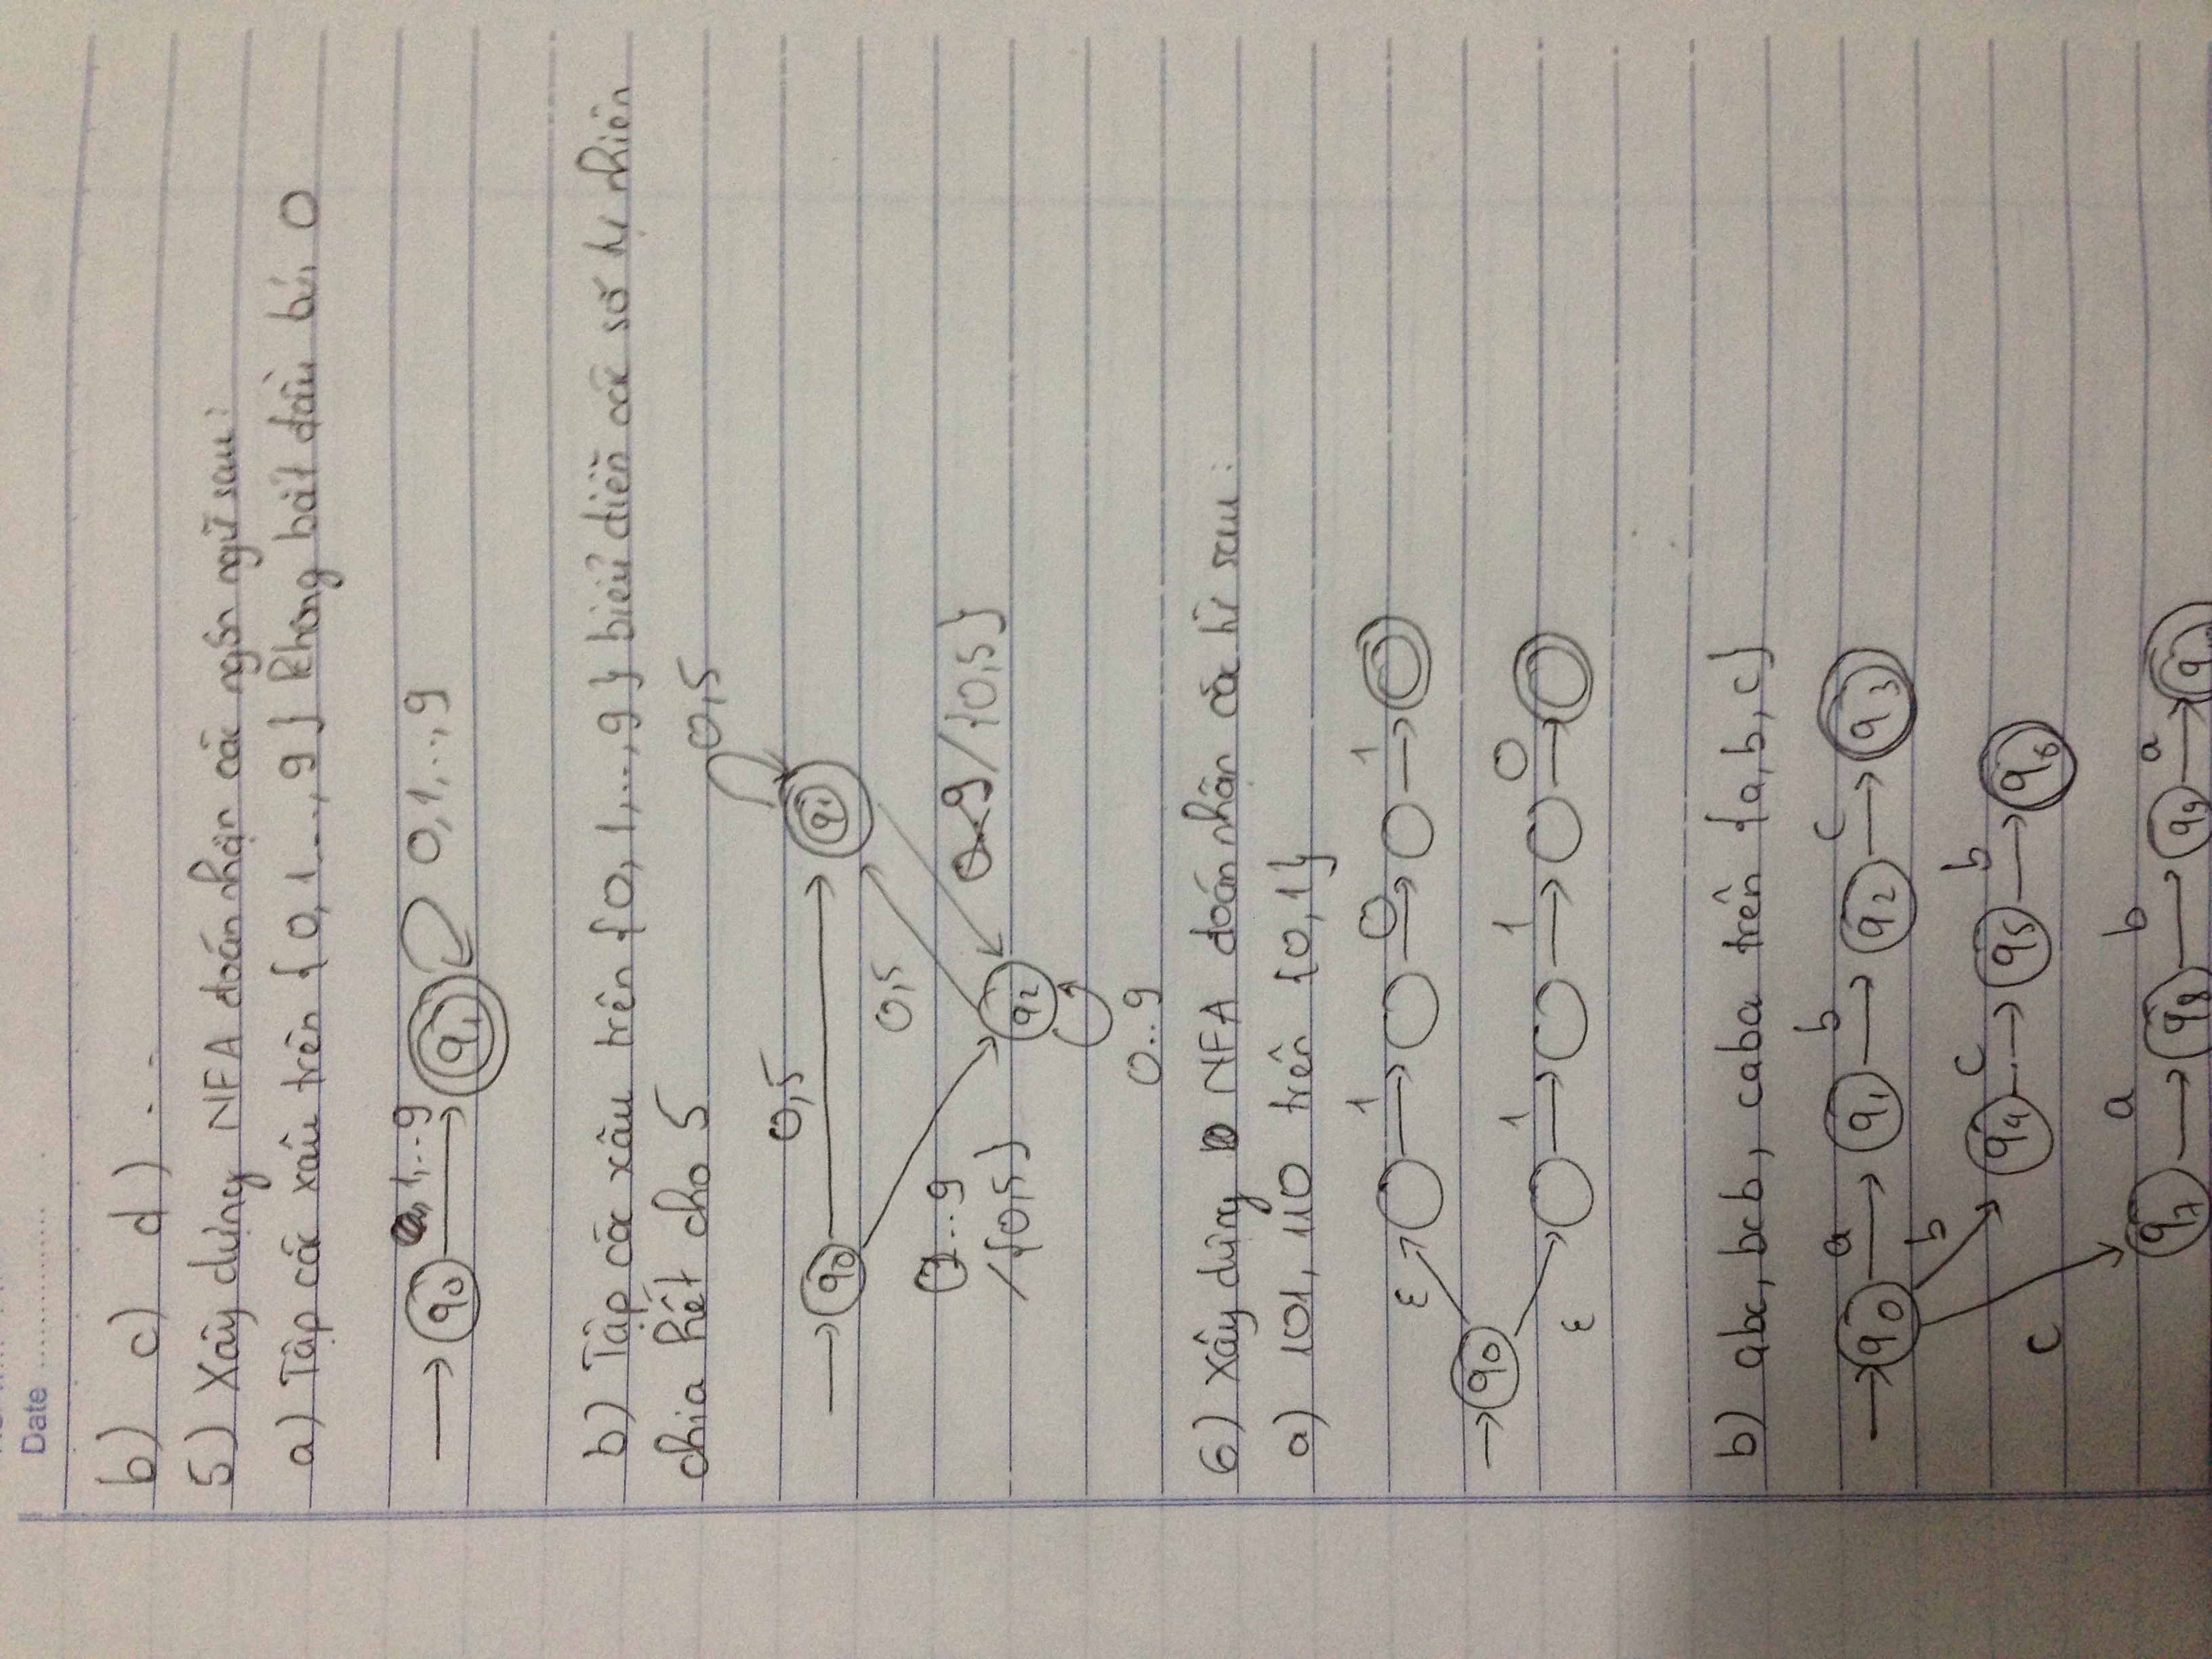 Date ...............
b) c) d) . .
5) Xây dựng NFA đoán nhận các ngôn ngữ sau:
a) Tập các xâu trên {0, 1..., 9} không bắt đầu bởi 0
q0 1,..9 q1 0,1,..,9
b) Tập các xâu trên {0, 1,..., 9} biểu diễn các số tự nhiên
chia hết cho 5
0,5
0,5
q0 q1
0,5
..9
/{0,5}
0..9/{0,5}
q2
0..9
6) Xây dựng NFA đoán nhận các sau:
a) 101, 110 trên {0, 1}
ε 1 0 1
q0
ε 1 1 0
b) abc, bcb, caba trên {a, b, c}
q0 a q1 b q2 c q3
b q4 c q5 b q6
c
q7 a q8 b q9 a q10